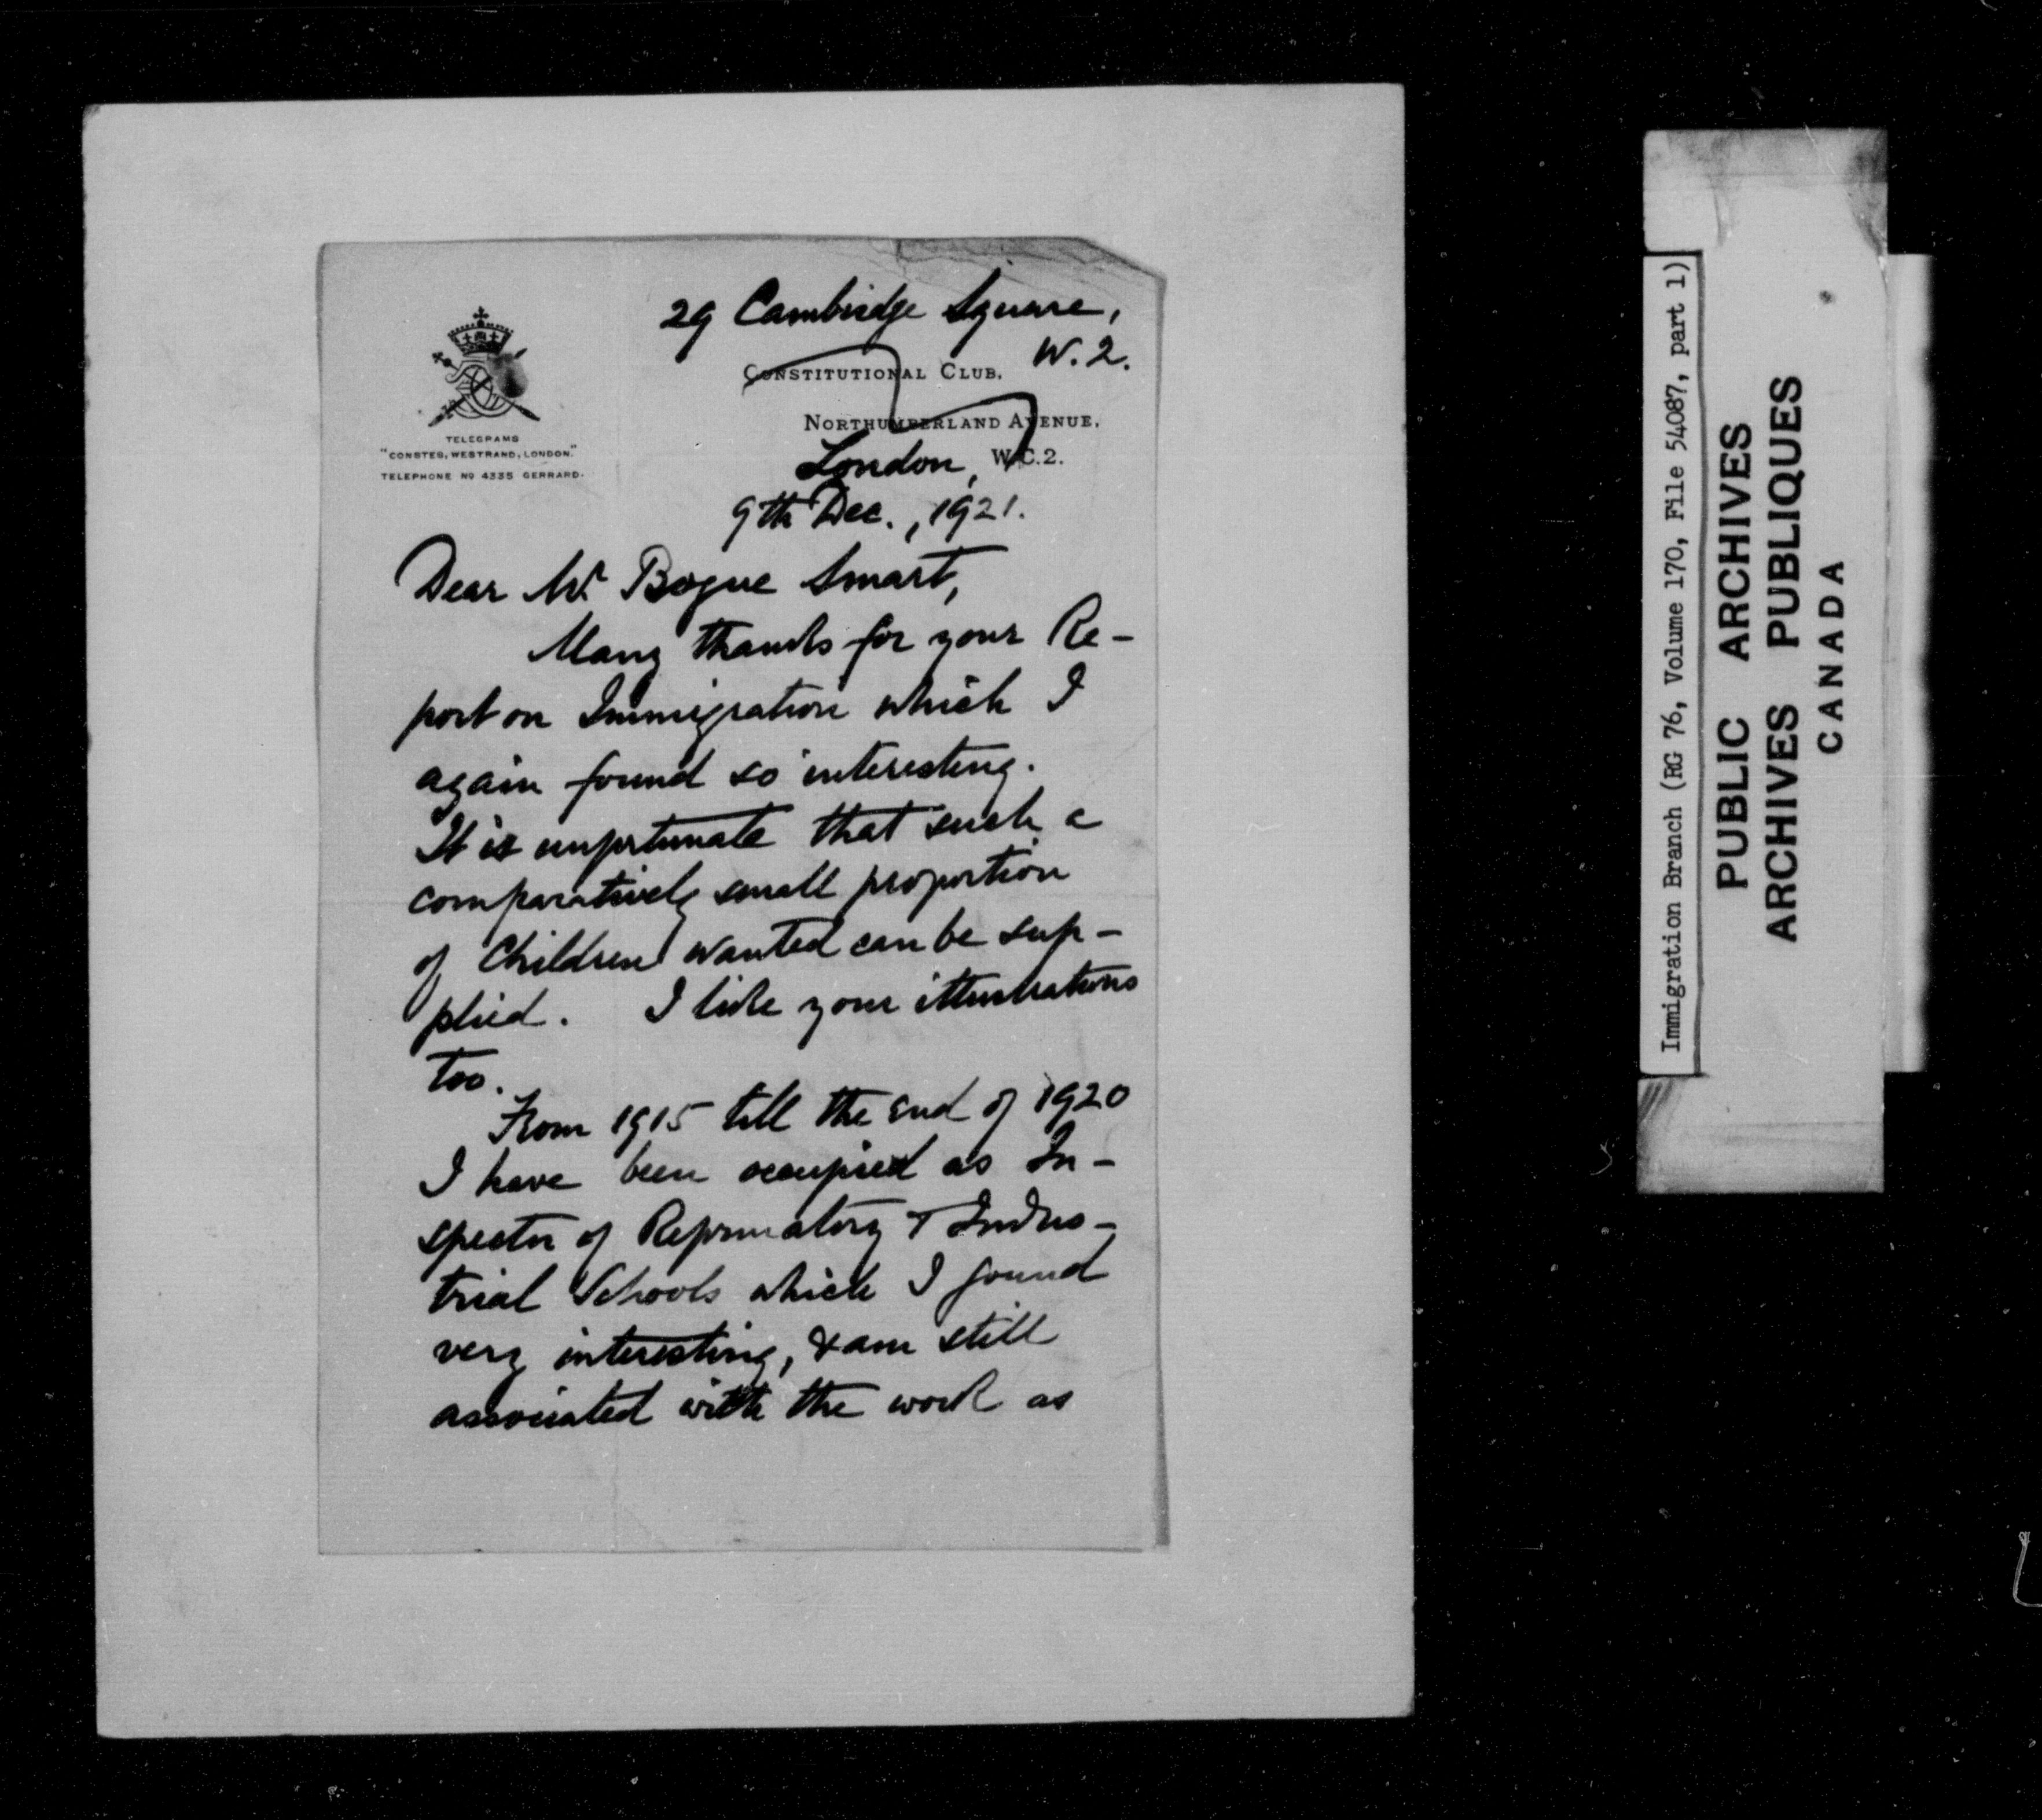 29 Cambridge Square,
W. 2.
CONSTITUTIONAL CLUB,
NORTHUMBERLAND AVENUE,
London, W.C.2.
TELEGRAMS
"CONSTES, WESTRAND, LONDON."
TELEPHONE No 4335 GERRARD.
9th Dec., 1921.
Dear Mr. Bogue Smart,
Many thanks for your Re-
port on Immigration which I
again found so interesting.
It is unfortunate that such a
comparatively small proportion
of Children wanted can be sup-
plied. I like your illustrations
too.
From 1915 till the end of 1920
I have been occupied as In-
spector of Reformatory & Indus-
trial Schools which I found
very interesting, & am still
associated with the work as
Immigration Branch (RG 76, Volume 170, File 54087, part 1)
PUBLIC ARCHIVES
ARCHIVES PUBLIQUES
CANADA